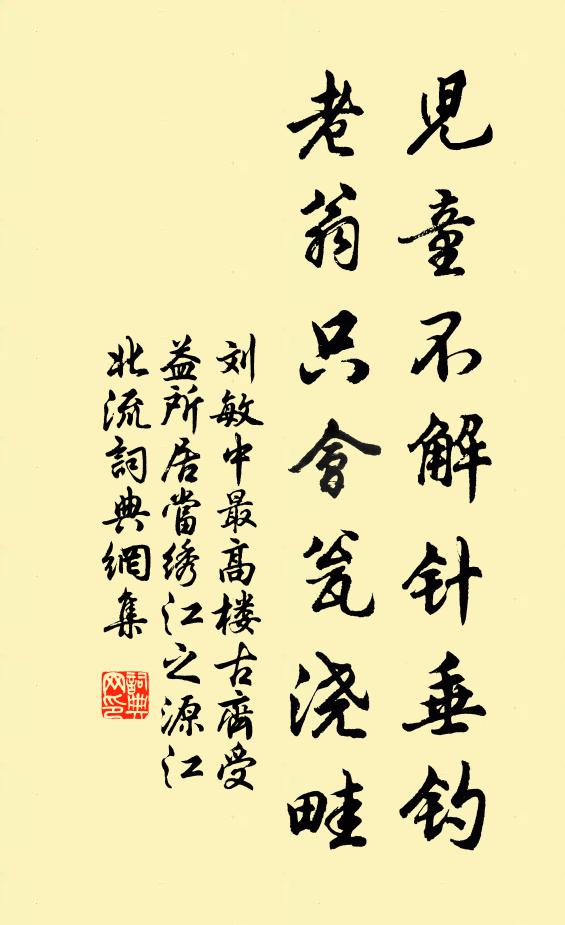 児童不解针垂钓
老翁只會瓮浇畦
刘敏中最高楼古齊受
益所居當绣江之源江
北流詞典網集
詞典
网印